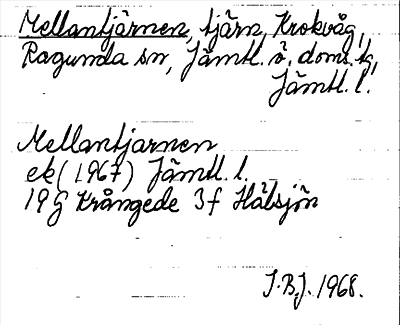 Mellantjärnen, tjärn, Krokvåg,
Ragunda sn, Jämtl. ö. doms.tg,
Jämtl. l.
Mellantjarnen
ek (1967) Jämtl. l.
19 G Krångede 3f Hälsjön
J.B.J. 1968.